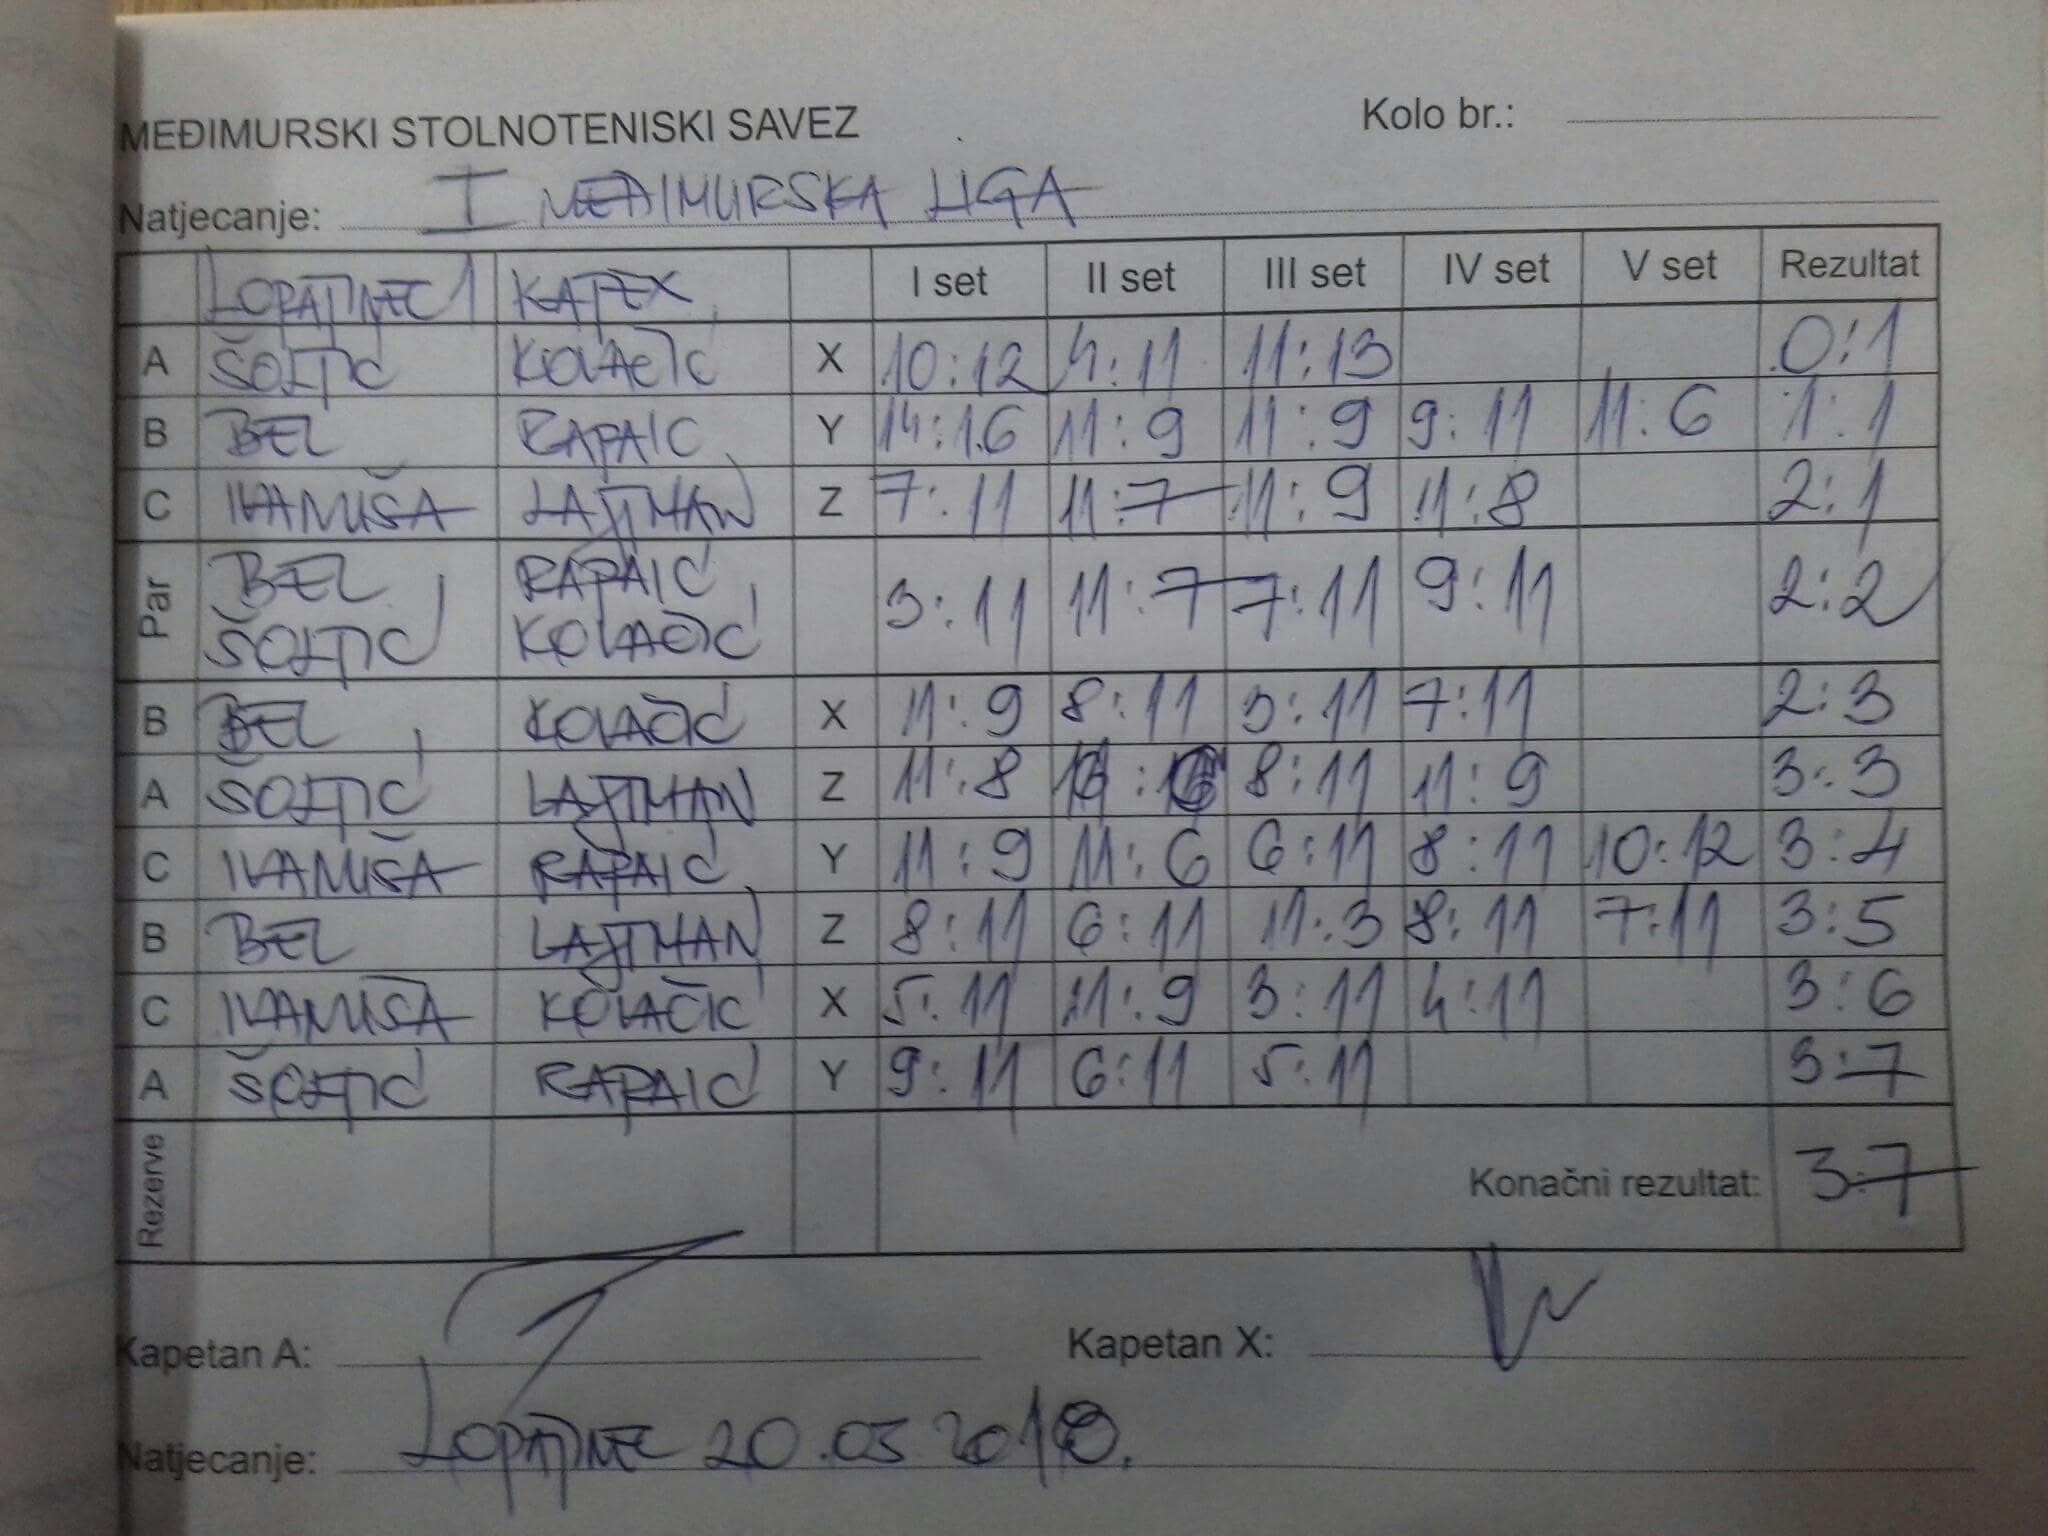 MEĐIMURSKI STOLNOTENISKI SAVEZ Kolo br.:
Natjecanje: I MEĐIMURSKA LIGA
LOPATINEC 1 KATEX I set II set III set IV set V set Rezultat
A ŠOLTIĆ KOVAČIĆ X 10:12 4:11 11:13 0:1
B BEL RAPAIĆ Y 14:16 11:9 11:9 9:11 11:6 1:1
C IVANUŠA LAJTMAN Z 7:11 11:7 11:9 11:8 2:1
Par BEL RAPAIĆ 3:11 11:7 7:11 9:11 2:2
ŠOLTIĆ KOVAČIĆ
B BEL KOVAČIĆ X 11:9 8:11 3:11 7:11 2:3
A ŠOLTIĆ LAJTMAN Z 11:8 8:11 11:9 3:3
C IVANUŠA RAPAIĆ Y 11:9 11:6 6:11 8:11 10:12 3:4
B BEL LAJTMAN Z 8:11 6:11 11:3 8:11 7:11 3:5
C IVANUŠA KOVAČIĆ X 5:11 11:9 3:11 4:11 3:6
A ŠOLTIĆ RAPAIĆ Y 9:11 6:11 5:11 3:7
Rezerve Konačni rezultat: 3:7
Kapetan A: Kapetan X:
Natjecanje: LOPATINEC 20.03 2018.